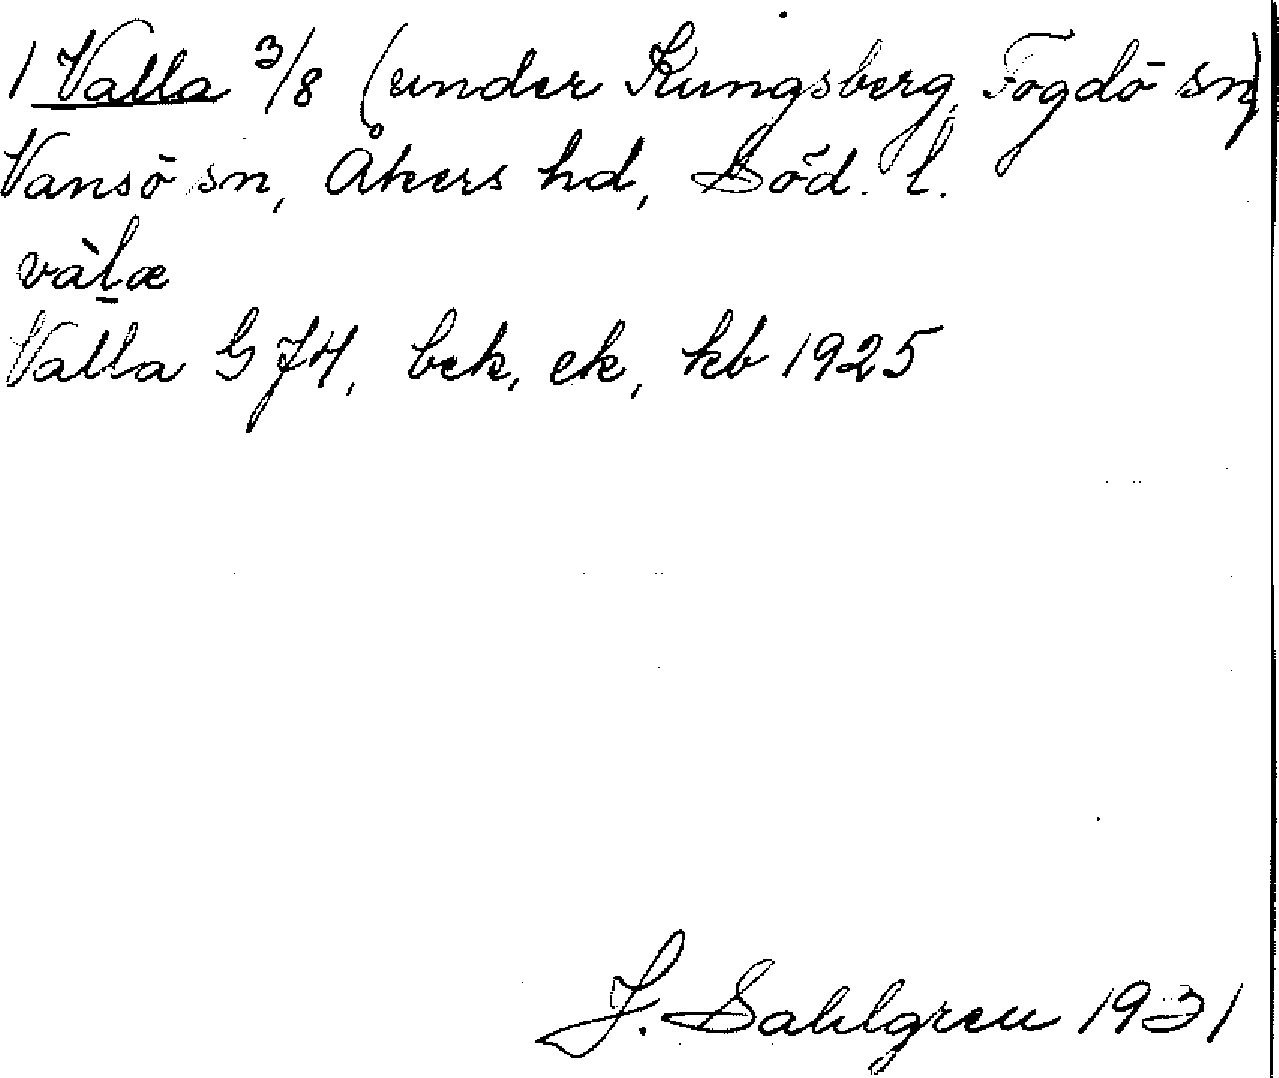 1 Valla 3/8 (under Kungsberg, Fogdö sn)
Vansö sn, Åkers hd, Söd. l.
vàḻæ
Valla GJH, bek, ek, kb 1925
J. Sahlgren 1931